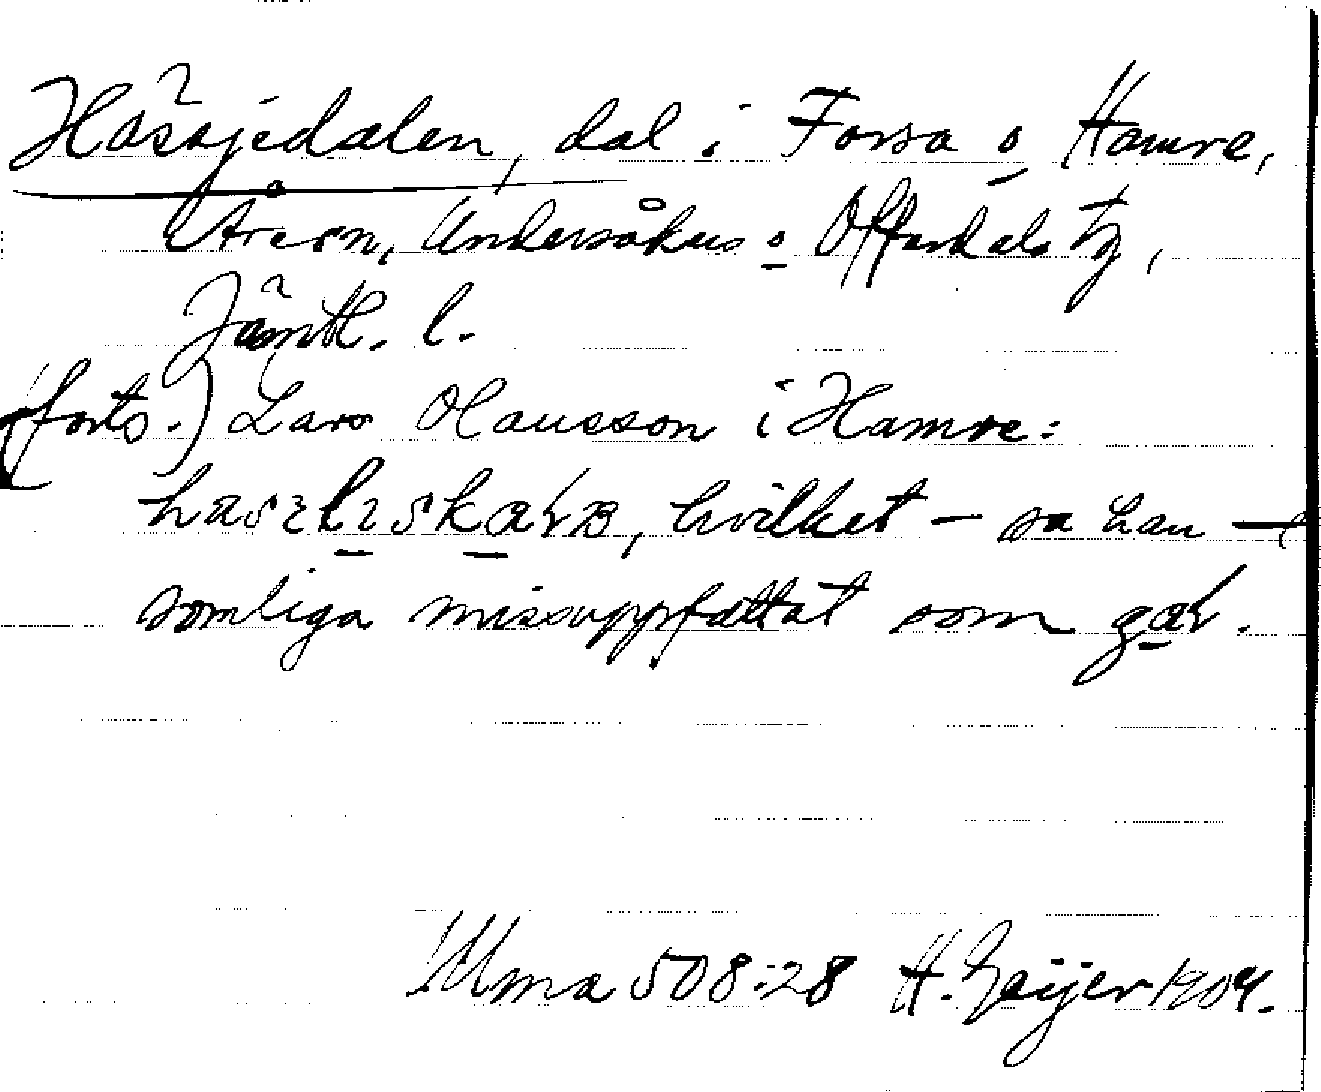 Häsjedalen, dal i Forsa o Hamre,
Åreön, Undersåkers o Offerdals tg,
Jämtl. l.
(forts.) Lars Olausson i Hamre:
hvilket – sa han –
somliga missuppfattat som
Ulma 508:28 H. Geijer 1904.